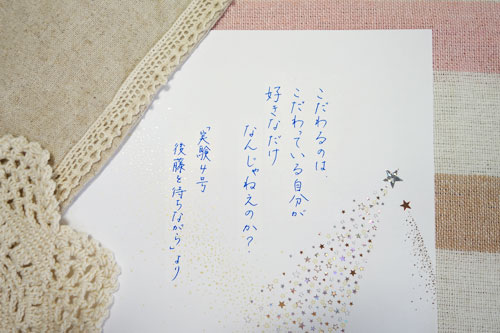 こだわるのは、
こだわっている自分が
好きなだけ
なんじゃねえのか？
「実験4号
後藤を待ちながら」より